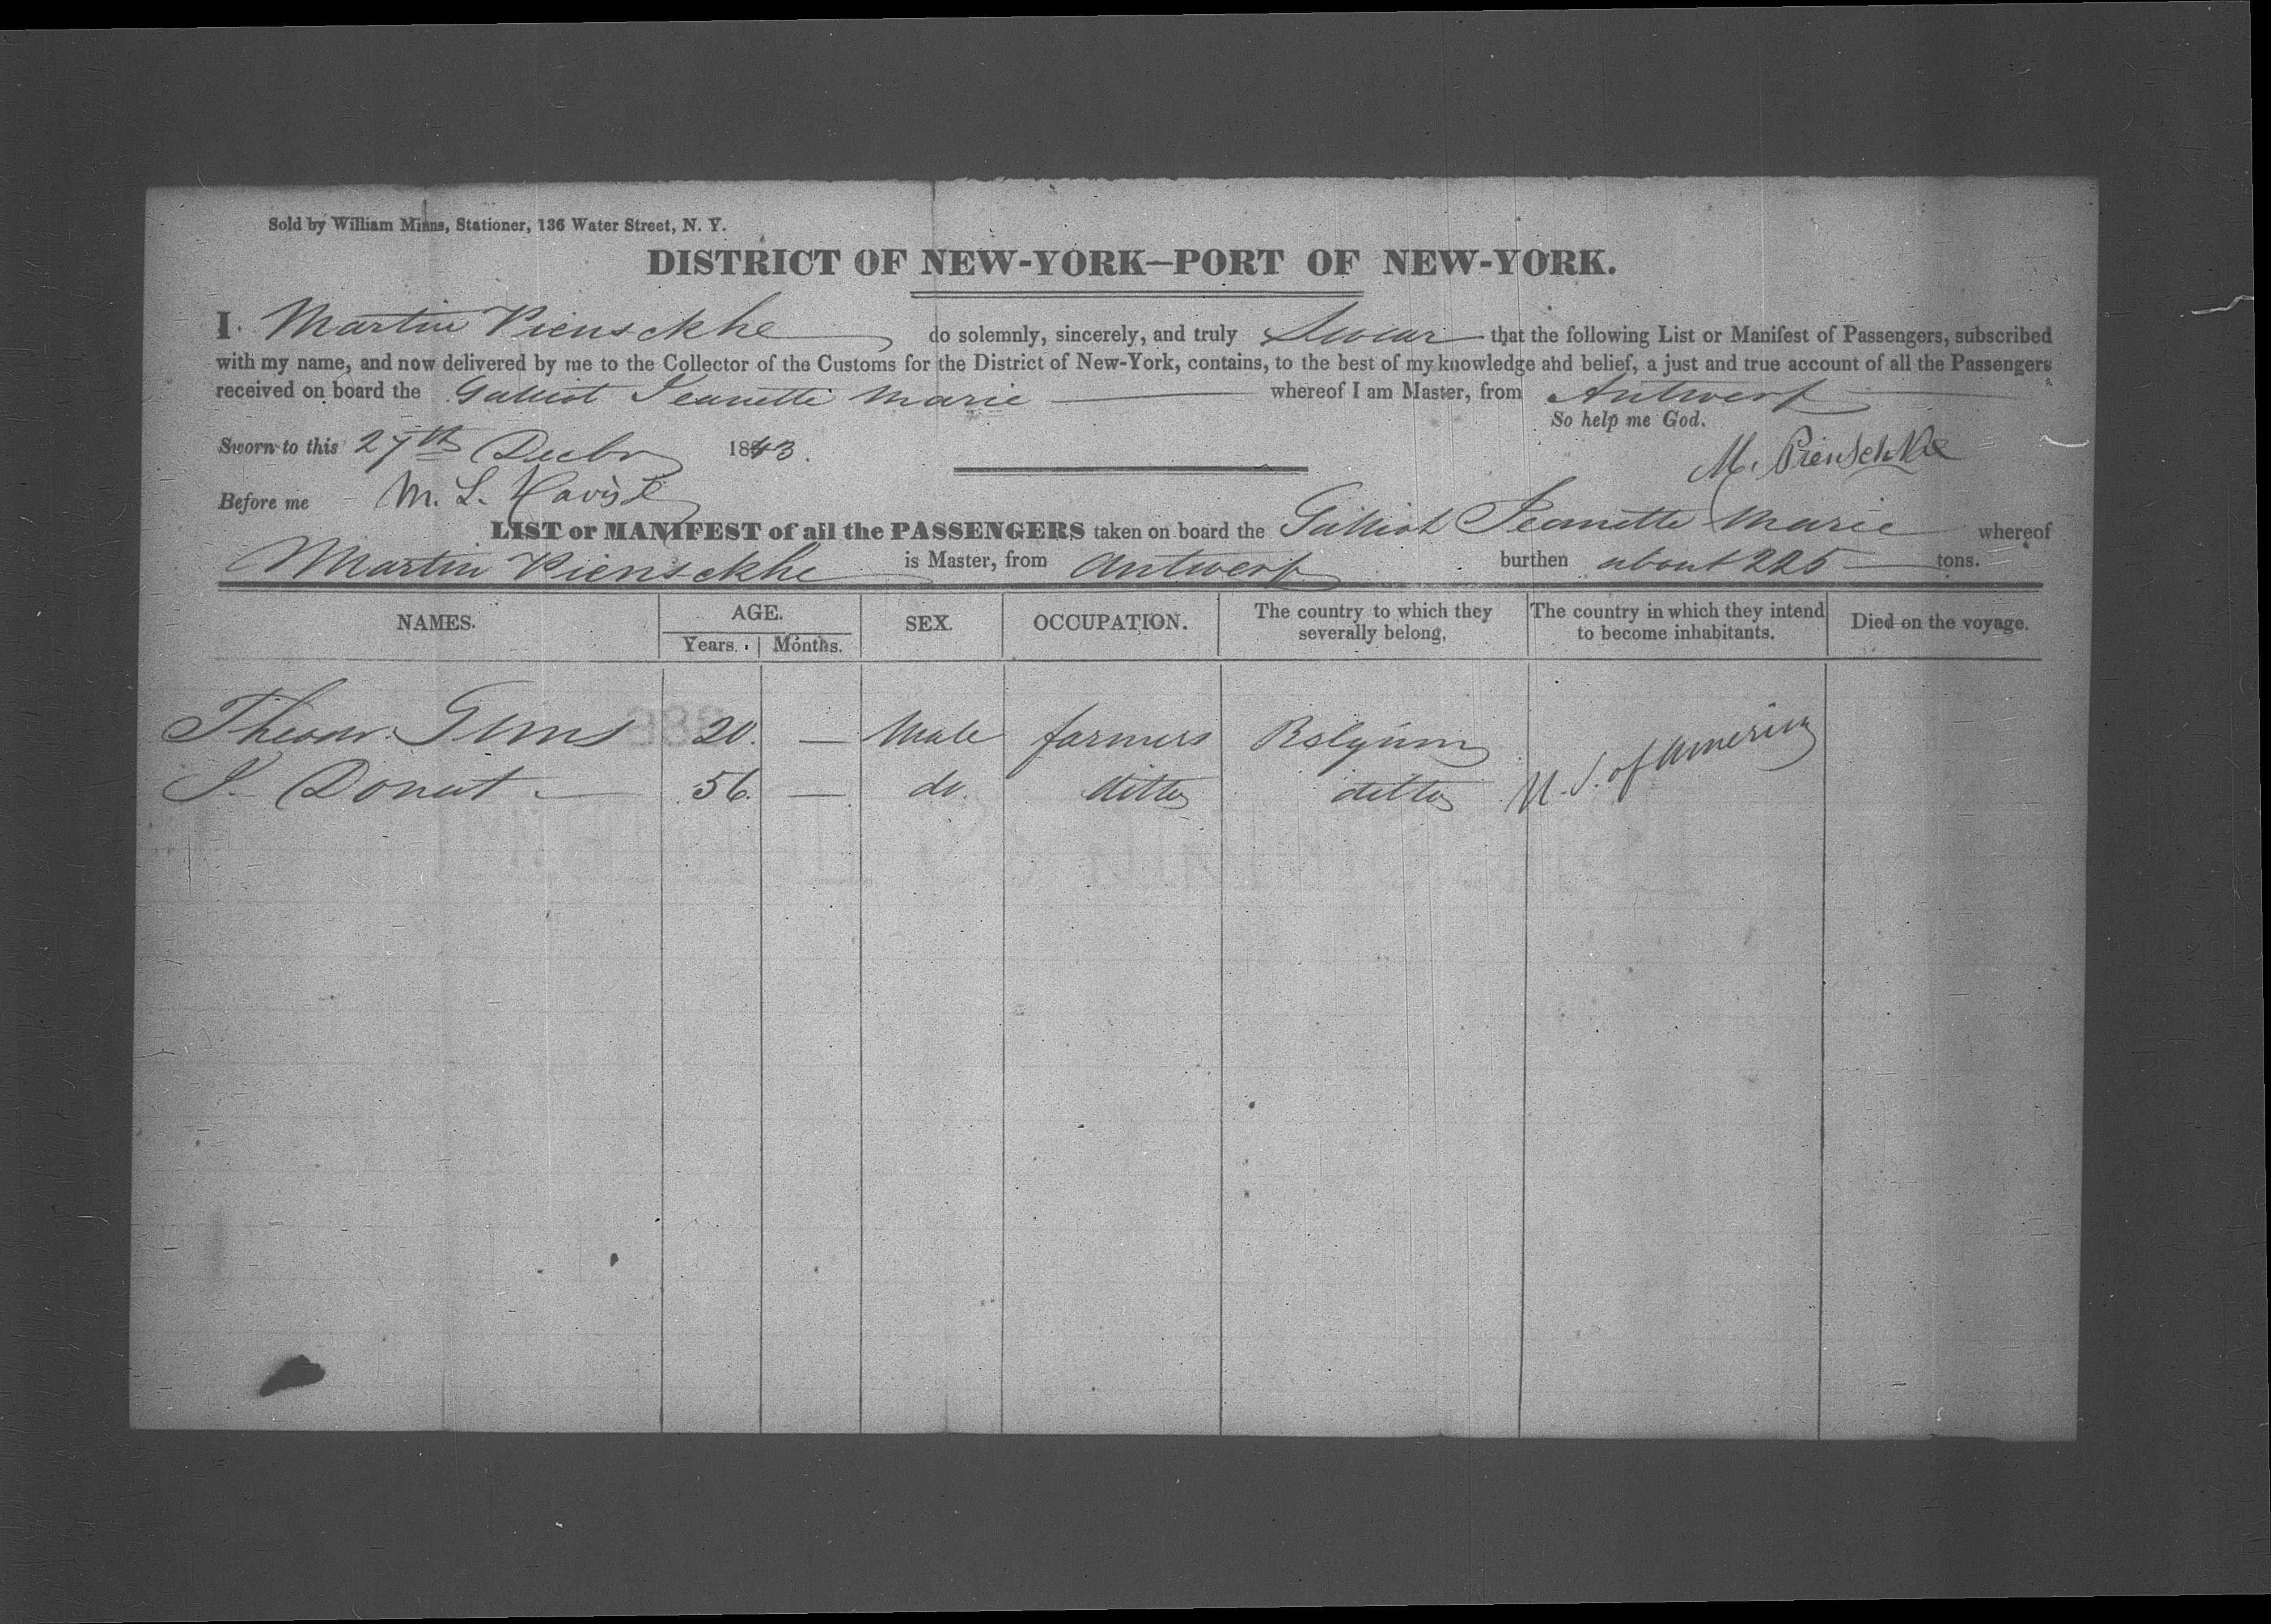 Sold by William Minns, Stationer, 136 Water Street, N. Y.
DISTRICT OF NEW-YORK—PORT OF NEW-YORK.
I Martin Pienschke do solemnly, sincerely, and truly Swear that the following List or Manifest of Passengers, subscribed
with my name, and now delivered by me to the Collector of the Customs for the District of New-York, contains, to the best of my knowledge and belief, a just and true account of all the Passengers
received on board the Galliot Jeanette Marie whereof I am Master, from Antwerp
So help me God.
Sworn to this 27th Decbr 1843.
M. Pienschke
Before me M. L.
LIST or MANIFEST of all the PASSENGERS taken on board the Galliot Jeanette Marie whereof
Martin Pienschke is Master, from Antwerp burthen about 225 tons.
NAMES. AGE. SEX. OCCUPATION. The country to which they severally belong. The country in which they intend to become inhabitants. Died on the voyage.
Years. Months.
Theodr. 20. — Male farmers Belgium U. S. of America
J. Donut — 56. — do. ditto ditto